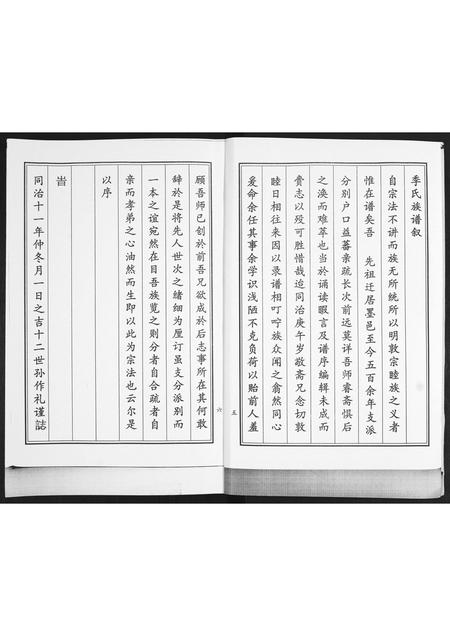 季氏族谱叙
自宗法不讲而族无所统所以明敦宗睦族之义者
惟在谱矣吾 先祖迁居墨邑至今五百余年支派
分别户口益蕃亲疏长次前远莫详吾师睿斋惧后
之涣而难萃也当於诵读暇言及谱序编辑未成而
赍志以殁可胜惜哉迨同治庚午岁敬斋兄念切敦
睦日相往来因以录谱相叮咛族众闻之翕然同心
爰命余任其事余学识浅陋不克负荷以贻前人羞
五
顾吾师已创於前吾兄欲成於后志事所在其何敢
辞於是将先人世次之绪细为厘订虽支分派别而
一本之谊宛然在目吾族览之则分者自合疏者自
亲而孝弟之心油然而生即以此为宗法也云尔是
以序
旹
同治十一年仲冬月一日之吉十二世孙作礼谨誌
六